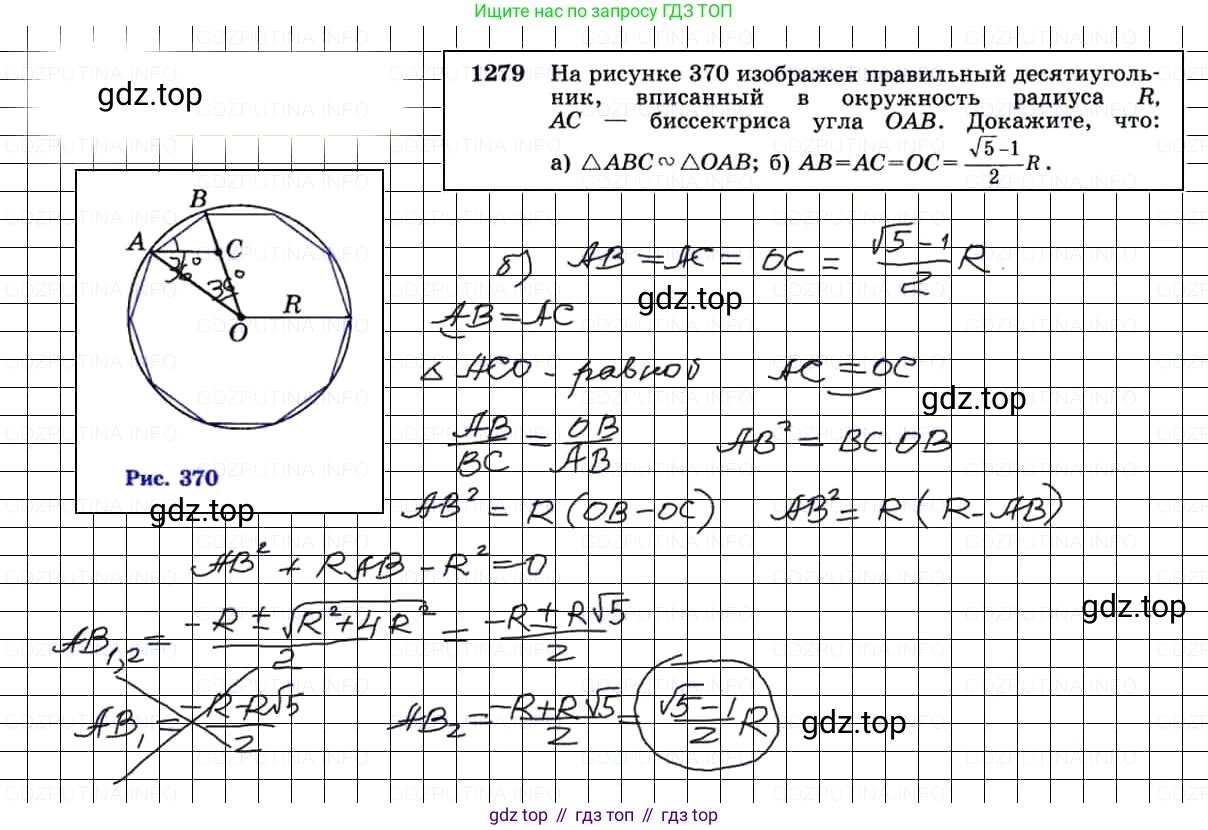 Ищите нас по запросу ГДЗ ТОП
1279 На рисунке 370 изображен правильный десятиуголь-
ник, вписанный в окружность радиуса R,
AC — биссектриса угла OAB. Докажите, что:
а) △ABC ∾ △OAB; б) AB=AC=OC= (√5-1)/2 R.
gdz.top
B
A
C
36°
36°
R
O
Рис. 370
gdz.top
б) AB = AC = OC = (√5 - 1)/2 R.
gdz.top
AB = AC
△ ACO - равноб AC = OC
gdz.top
AB/BC = OB/AB AB² = BC OB
AB² = R (OB - OC) AB² = R (R - AB)
AB² + RAB - R² = 0
gdz.top
AB₁,₂ = (-R ± √(R² + 4R²))/2 = (-R ± R√5)/2
AB₁ = (-R - R√5)/2 AB₂ = (-R + R√5)/2 = (√5 - 1)/2 R
gdz.top
gdz top // гдз топ // gdz top